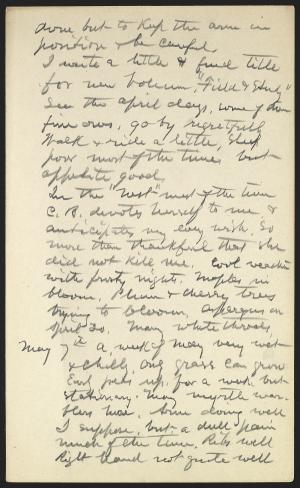 done but to keep the arm in
position & be careful.
I write a little & find title
for new volume, "Field & Study"
See the April days, some of them
fine ones, go by regretfully
Walk & ride a little, sleep
poor most of the time but
appetite good.
In the "Nest" most of the time
C. B. devotes herself to me, &
anticipates my every wish. So
more than thankful that she
did not kill me. Cool weather
with frosty nights. Maples in
bloom. Plum & cherry trees
trying to bloom. Asparagus on
April 20. Many white throats.
May 7th A week of May very wet
& chilly, only grass can grow
Everything for a week but
stationary. Many myrtle war-
blers here. Arm doing well
I suppose, but a dull pain
much of the time. Ribs well
Right hand not quite well